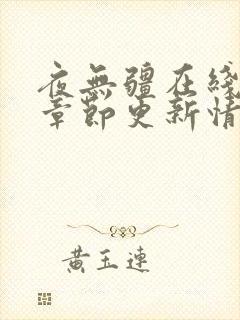 夜無疆在綫
章節更新情
黄玉連